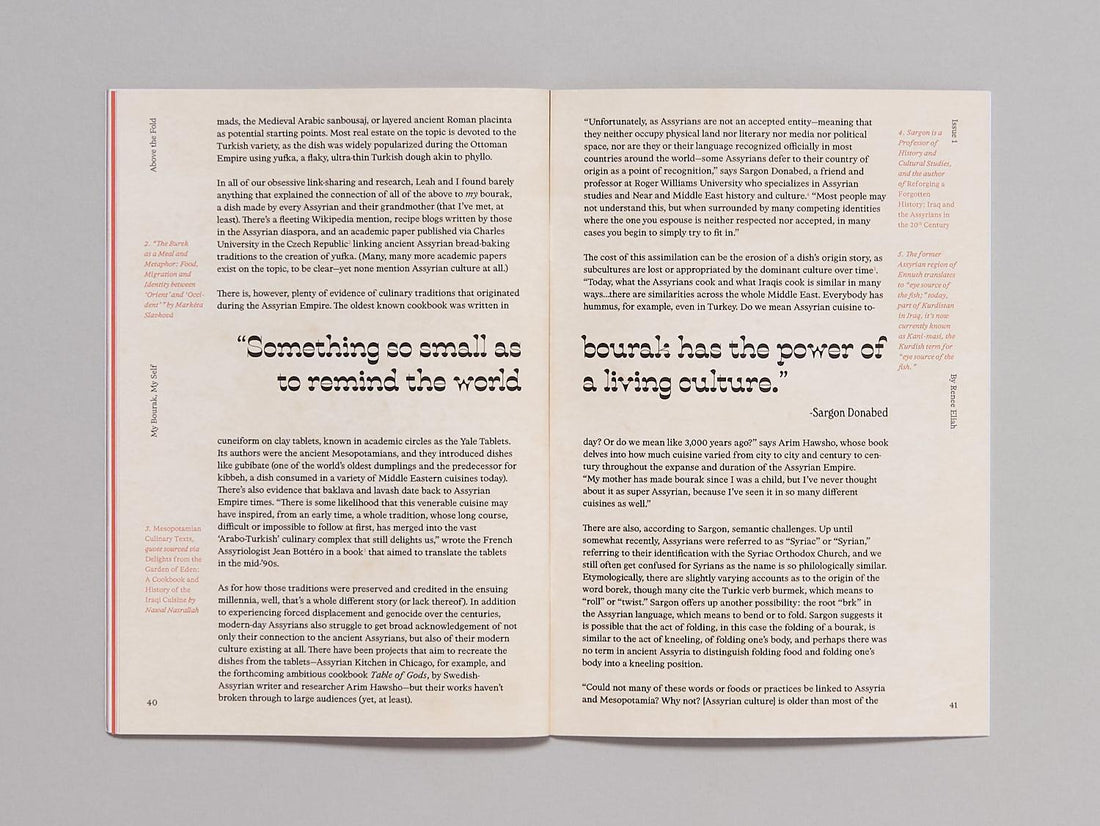 Above the Fold
mads, the Medieval Arabic sanbousaj, or layered ancient Roman placinta
as potential starting points. Most real estate on the topic is devoted to the
Turkish variety, as the dish was widely popularized during the Ottoman
Empire using yufka, a flaky, ultra-thin Turkish dough akin to phyllo.
In all of our obsessive link-sharing and research, Leah and I found barely
anything that explained the connection of all of the above to my bourak,
a dish made by every Assyrian and their grandmother (that I’ve met, at
least). There’s a fleeting Wikipedia mention, recipe blogs written by those
in the Assyrian diaspora, and an academic paper published via Charles
University in the Czech Republic² linking ancient Assyrian bread-baking
traditions to the creation of yufka. (Many, many more academic papers
exist on the topic, to be clear—yet none mention Assyrian culture at all.)
There is, however, plenty of evidence of culinary traditions that originated
during the Assyrian Empire. The oldest known cookbook was written in
2. “The Burek
as a Meal and
Metaphor: Food,
Migration and
Identity between
‘Orient’ and ‘Occi-
dent’” by Markéta
Slavková
“Something so small as
to remind the world
My Bourak, My Self
cuneiform on clay tablets, known in academic circles as the Yale Tablets.
Its authors were the ancient Mesopotamians, and they introduced dishes
like gubibate (one of the world’s oldest dumplings and the predecessor for
kibbeh, a dish consumed in a variety of Middle Eastern cuisines today).
There’s also evidence that baklava and lavash date back to Assyrian
Empire times. “There is some likelihood that this venerable cuisine may
have inspired, from an early time, a whole tradition, whose long course,
difficult or impossible to follow at first, has merged into the vast
‘Arabo-Turkish’ culinary complex that still delights us,” wrote the French
Assyriologist Jean Bottéro in a book³ that aimed to translate the tablets
in the mid-’90s.
As for how those traditions were preserved and credited in the ensuing
millennia, well, that’s a whole different story (or lack thereof). In addition
to experiencing forced displacement and genocide over the centuries,
modern-day Assyrians also struggle to get broad acknowledgement of not
only their connection to the ancient Assyrians, but also of their modern
culture existing at all. There have been projects that aim to recreate the
dishes from the tablets—Assyrian Kitchen in Chicago, for example, and
the forthcoming ambitious cookbook Table of Gods, by Swedish-
Assyrian writer and researcher Arim Hawsho—but their works haven’t
broken through to large audiences (yet, at least).
3. Mesopotamian
Culinary Texts,
quote sourced via
Delights from the
Garden of Eden:
A Cookbook and
History of the
Iraqi Cuisine by
Nawal Nasrallah
40
“Unfortunately, as Assyrians are not an accepted entity—meaning that
they neither occupy physical land nor literary nor media nor political
space, nor are they or their language recognized officially in most
countries around the world—some Assyrians defer to their country of
origin as a point of recognition,” says Sargon Donabed, a friend and
professor at Roger Williams University who specializes in Assyrian
studies and Near and Middle East history and culture.⁴ “Most people may
not understand this, but when surrounded by many competing identities
where the one you espouse is neither respected nor accepted, in many
cases you begin to simply try to fit in.”
The cost of this assimilation can be the erosion of a dish’s origin story, as
subcultures are lost or appropriated by the dominant culture over time⁵.
“Today, what the Assyrians cook and what Iraqis cook is similar in many
ways...there are similarities across the whole Middle East. Everybody has
hummus, for example, even in Turkey. Do we mean Assyrian cuisine to-
bourak has the power of
a living culture.”
-Sargon Donabed
day? Or do we mean like 3,000 years ago?” says Arim Hawsho, whose book
delves into how much cuisine varied from city to city and century to cen-
tury throughout the expanse and duration of the Assyrian Empire.
“My mother has made bourak since I was a child, but I’ve never thought
about it as super Assyrian, because I’ve seen it in so many different
cuisines as well.”
There are also, according to Sargon, semantic challenges. Up until
somewhat recently, Assyrians were referred to as “Syriac” or “Syrian,”
referring to their identification with the Syriac Orthodox Church, and we
still often get confused for Syrians as the name is so philologically similar.
Etymologically, there are slightly varying accounts as to the origin of the
word borek, though many cite the Turkic verb burmek, which means to
“roll” or “twist.” Sargon offers up another possibility: the root “brk” in
the Assyrian language, which means to bend or to fold. Sargon suggests it
is possible that the act of folding, in this case the folding of a bourak, is
similar to the act of kneeling, of folding one’s body, and perhaps there was
no term in ancient Assyria to distinguish folding food and folding one’s
body into a kneeling position.
“Could not many of these words or foods or practices be linked to Assyria
and Mesopotamia? Why not? [Assyrian culture] is older than most of the
Issue 1
4. Sargon is a
Professor of
History and
Cultural Studies,
and the author
of Reforging a
Forgotten
History: Iraq and
the Assyrians in
the 20th Century
5. The former
Assyrian region of
Ennuth translates
to “eye source of
the fish;” today,
part of Kurdistan
in Iraq, it’s now
currently known
as Kani-masi, the
Kurdish term for
“eye source of the
fish.”
By Renee Eliah
41